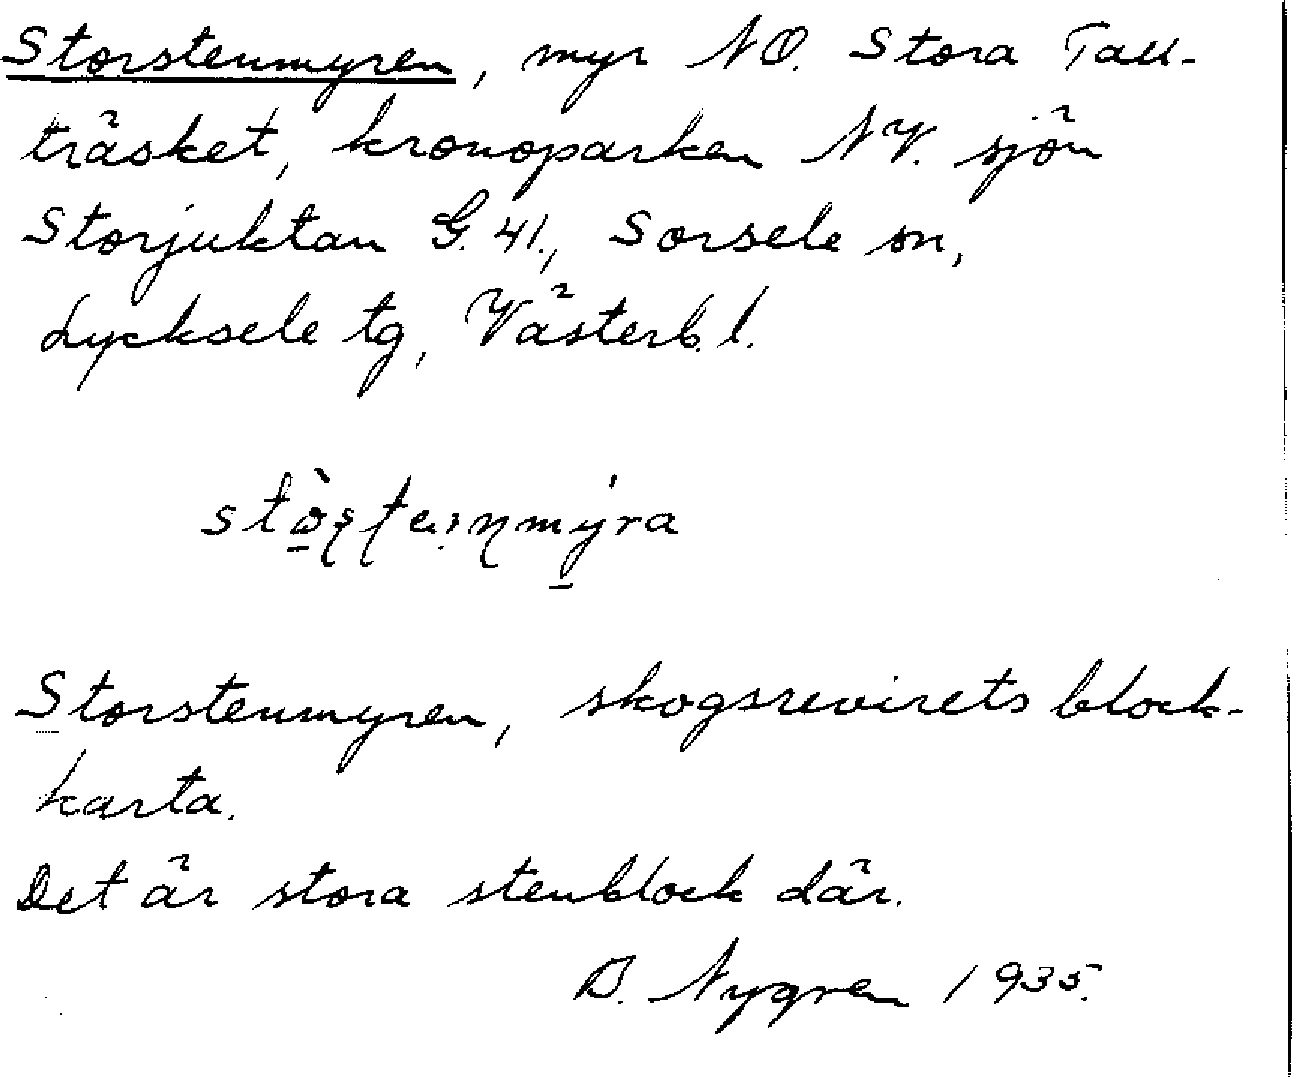 Storstenmyren, myr NO. Stora Tall-
träsket, kronoparken NV. sjön
Storjuktan G. 41., Sorsele sn,
Lycksele tg, Västerb. l.
Storstenmyren, skogsrevirets block-
karta.
Det är stora stenblock där.
B. Nygren 1935.